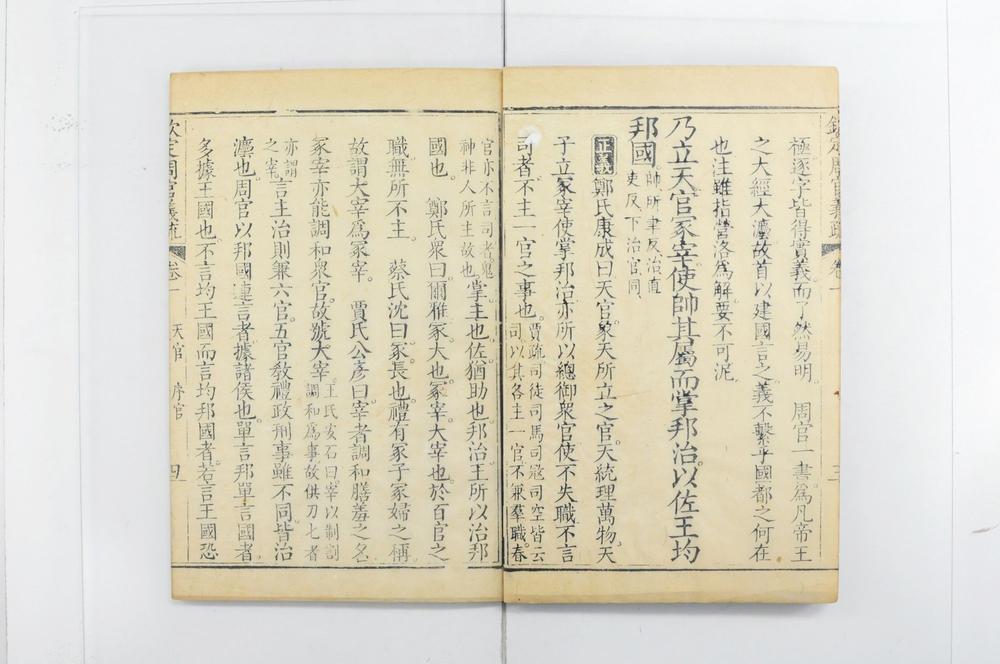 欽定周官義疏 卷一 三
極逐字皆得實義而了然易明 周官一書爲凡帝王
之大經大灋故首以建國言之義不繫乎國都之何在
也注雖指營洛爲解要不可泥
乃立天官冢宰使帥其屬而掌邦治以佐王均
邦國 帥所聿反治直
吏反下治官同
正義 鄭氏康成曰天官象天所立之官天統理萬物天
子立冢宰使掌邦治亦所以總御衆官使不失職不言
司者不主一官之事也 賈疏司徒司馬司寇司空皆云
司以其各主一官不兼羣職春
官亦不言司者鬼
神非人所主故也 掌主也佐猶助也邦治王所以治邦
國也 鄭氏衆曰爾雅冢大也冢宰大宰也於百官之
職無所不主 蔡氏沈曰冢長也禮有冢子冢婦之稱
故謂大宰爲冢宰 賈氏公彥曰宰者調和膳羞之名
冢宰亦能調和衆官故號大宰 王氏安石曰宰以制割
調和爲事故供刀匕者
亦謂
之宰 言主治則兼六官五官敎禮政刑事雖不同皆治
灋也周官以邦國連言者據諸侯也單言邦單言國者
多據王國也不言均王國而言均邦國者若言王國恐
欽定周官義疏 卷一 天官 序官 四